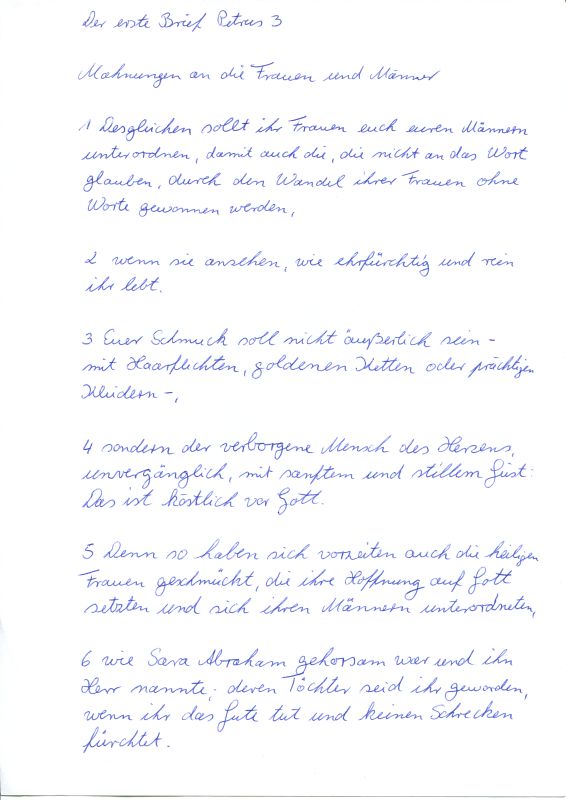 Der erste Brief Petrus 3
Mahnungen an die Frauen und Männer
1 Desgleichen sollt ihr Frauen euch euren Männern
unterordnen, damit auch die, die nicht an das Wort
glauben, durch den Wandel ihrer Frauen ohne
Worte gewonnen werden,
2 wenn sie ansehen, wie ehrfürchtig und rein
ihr lebt.
3 Euer Schmuck soll nicht äußerlich sein -
mit Haarflechten, goldenen Ketten oder prächtigen
Kleidern -,
4 sondern der verborgene Mensch des Herzens,
unvergänglich, mit sanftem und stillem Geist:
Das ist köstlich vor Gott.
5 Denn so haben sich vorzeiten auch die heiligen
Frauen geschmückt, die ihre Hoffnung auf Gott
setzten und sich ihren Männern unterordneten,
6 wie Sara Abraham gehorsam war und ihn
Herr nannte; deren Töchter seid ihr geworden,
wenn ihr das Gute tut und keinen Schrecken
fürchtet.